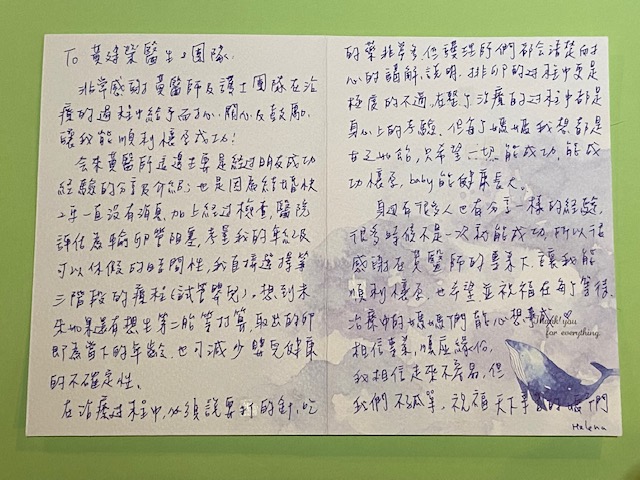 To 黃建榮醫生&團隊:
非常感謝黃醫師及護士團隊在治
療的過程中給予耐心、關心及鼓勵,
讓我能順利懷孕成功!
會來黃醫師這邊主要是經過朋友成功
經驗的分享及介紹;也是因為結婚快
2年一直沒有消息,加上經過檢查,醫院
評估為輸卵管阻塞,考量我的年紀及
可以休假的時間性,我直接選擇第
三階段的療程(試管嬰兒),想到未
來如果還有想生第二胎等打算,取出的卵
即為當下的年齡,也可減少嬰兒健康
的不確定性。
在治療過程中,必須說要打的針,吃
的藥非常多,但護理師們都會清楚耐
心的講解、說明。排卵的過程中更是
極度的不適,在整個治療的過程中都是
身心上的考驗。但每個媽媽我想都是
甘之如飴,只希望一切能成功,能成
功懷孕,baby能健康長大。
身邊有很多人也有分享一樣的經驗,
很多時候不是一次就能成功,所以很
感謝在黃醫師的專業下,讓我能
順利懷孕,也希望並祝福在每個等待、
治療中的媽媽們能心想事成。
Thank you
for everything.
相信專業,順應緣份,
我相信走來不容易,但
我們不孤單,祝福天下 的媽咪們
Helena